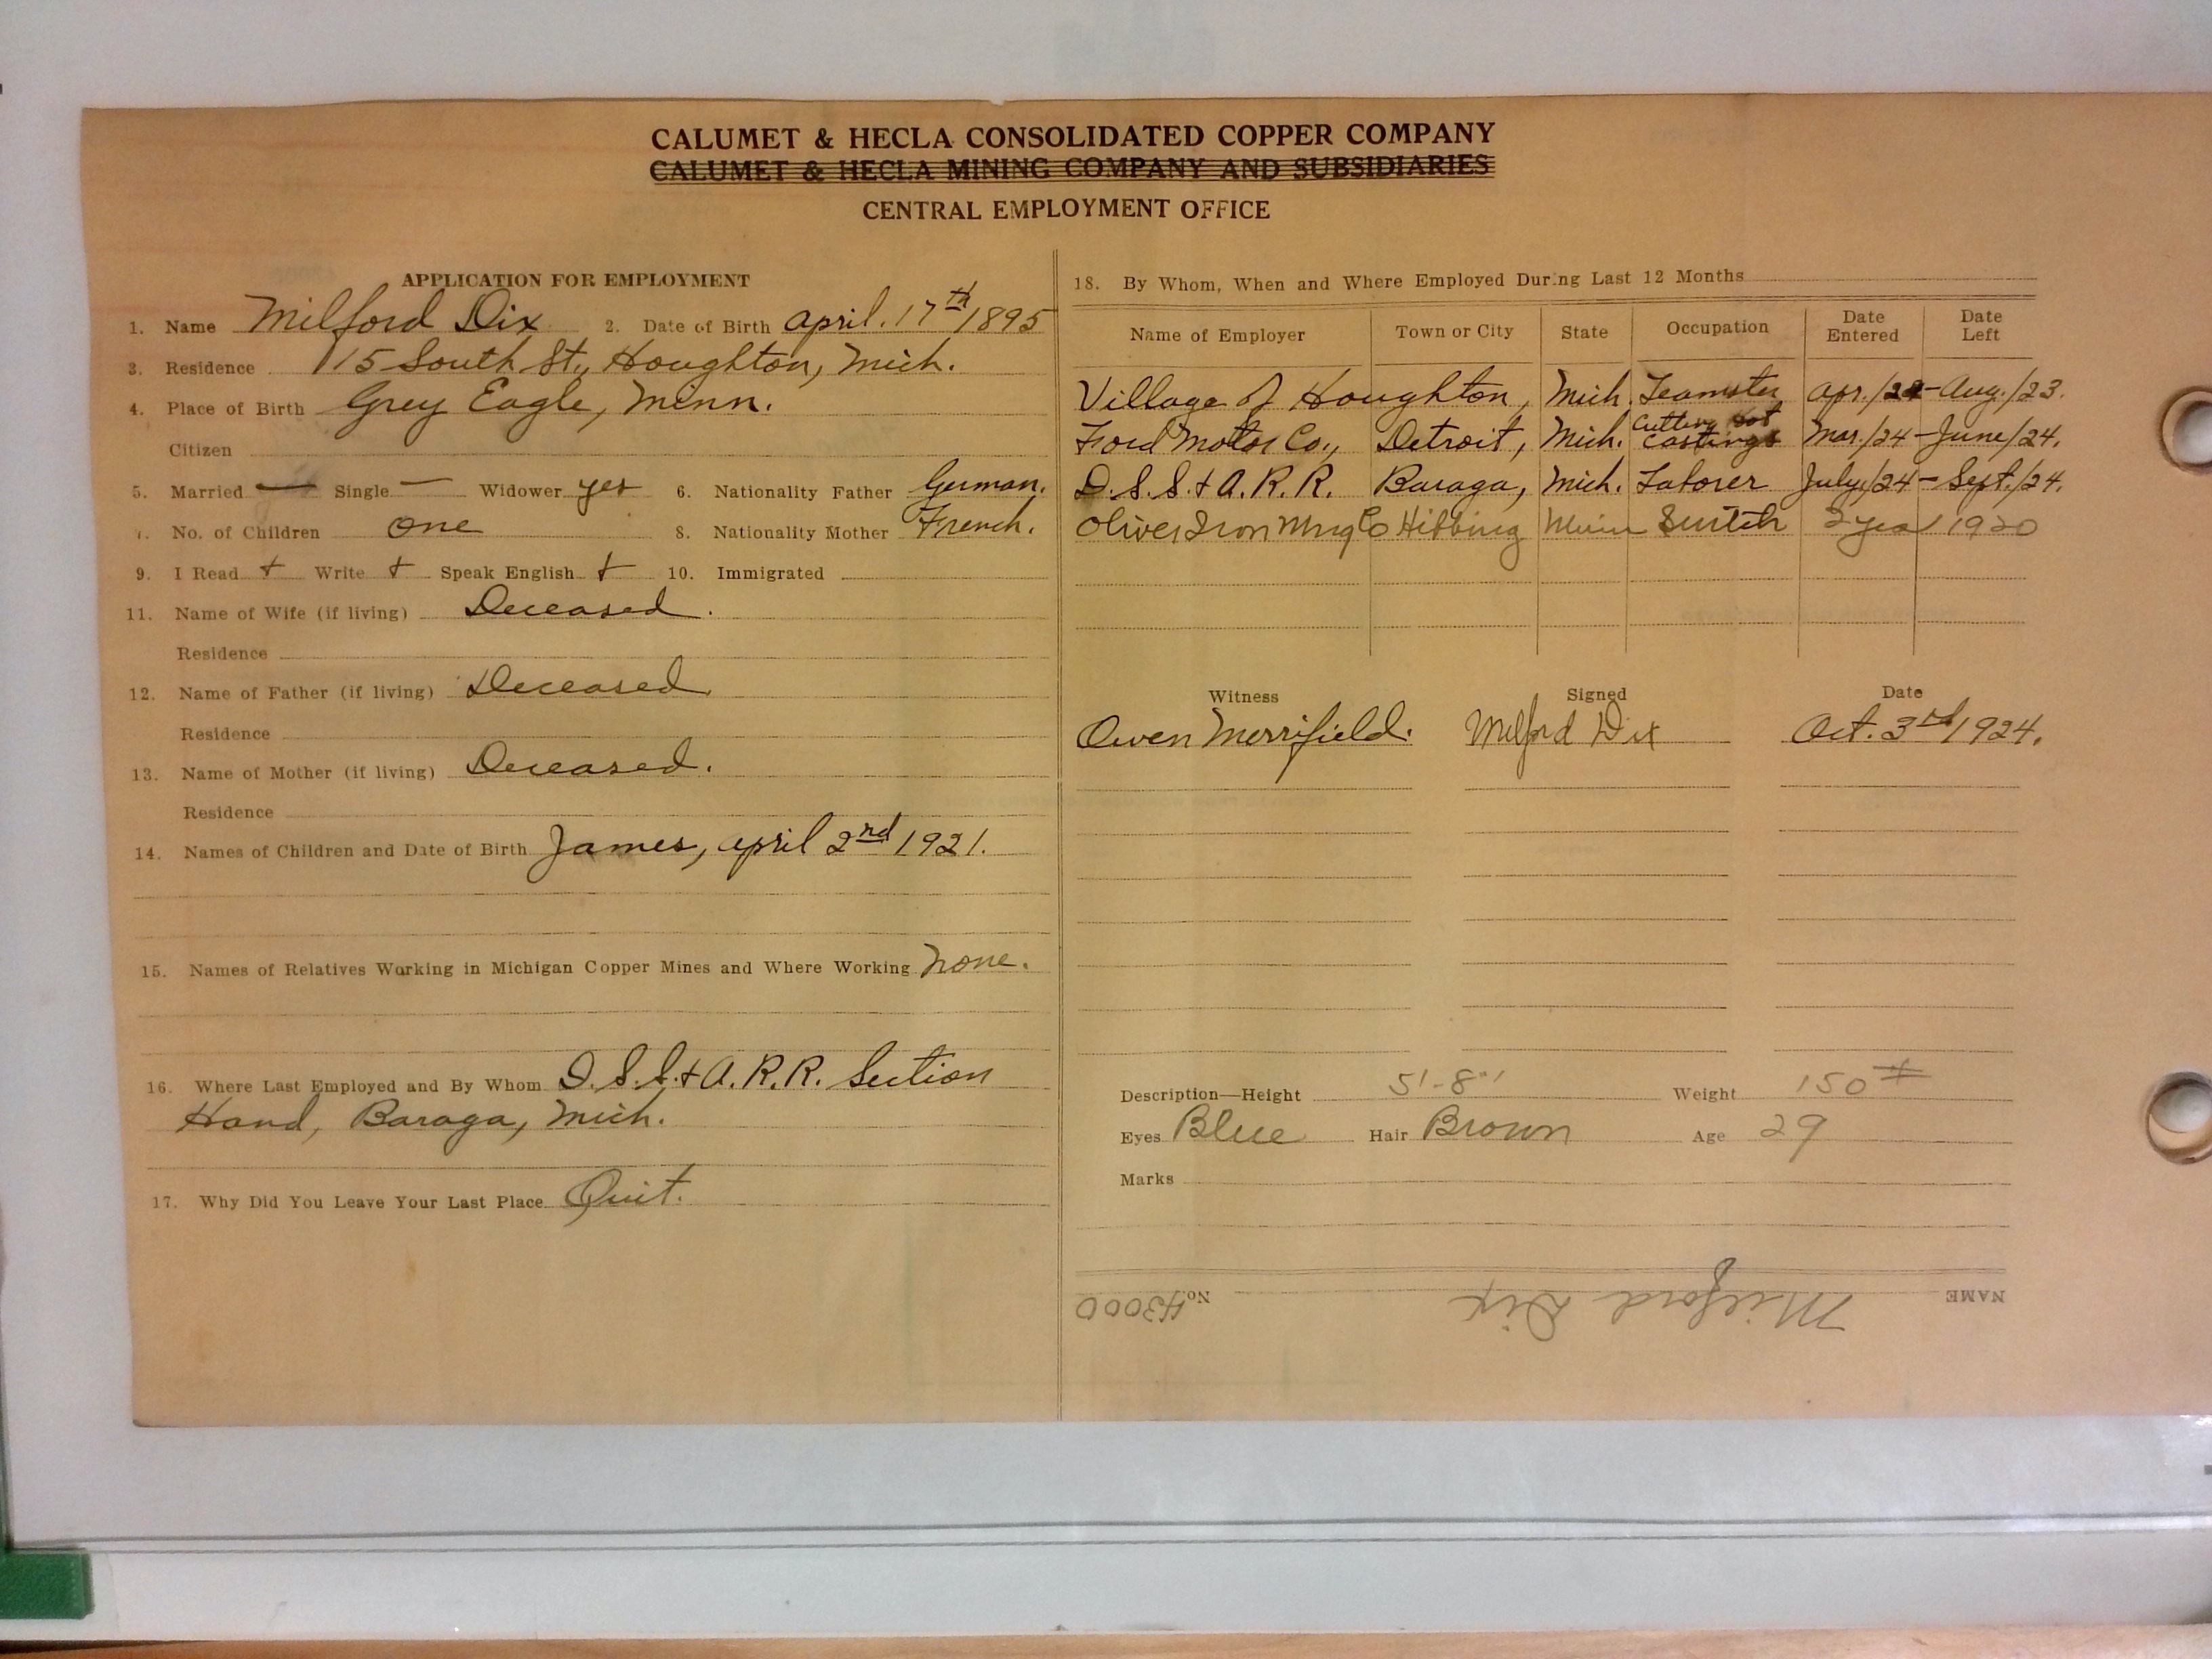 CALUMET & HECLA CONSOLIDATED COPPER COMPANY
CALUMET & HECLA MINING COMPANY AND SUBSIDIARIES
CENTRAL EMPLOYMENT OFFICE
APPLICATION FOR EMPLOYMENT
1. Name Milford Dix 2. Date of Birth april. 17th 1895
3. Residence 115 South St., Houghton, Mich.
4. Place of Birth Grey Eagle, Minn.
Citizen
5. Married — Single — Widower yes 6. Nationality Father German.
7. No. of Children one 8. Nationality Mother French.
9. I Read + Write + Speak English + 10. Immigrated
11. Name of Wife (if living) Deceased.
Residence
12. Name of Father (if living) Deceased
Residence
13. Name of Mother (if living) Deceased.
Residence
14. Names of Children and Date of Birth James, april 2nd 1921.
15. Names of Relatives Working in Michigan Copper Mines and Where Working none.
16. Where Last Employed and By Whom D.S.S. & A. R. R. Section
Hand, Baraga, Mich.
17. Why Did You Leave Your Last Place Quit.
18. By Whom, When and Where Employed During Last 12 Months
Name of Employer Town or City State Occupation Date Entered Date Left
Village of Houghton, Mich. Teamster apr./22 - Aug./23.
Ford Motor Co., Detroit, Mich. Cutting hot castings Mar./24 - June/24.
D.S.S. & A. R. R. Baraga, Mich. Laborer July/24 - Sept./24.
Oliver Iron Mng Co Hibbing Minn Switch 2 year 1920
Witness Signed Date
Owen Merrifield. Milford Dix Oct. 3rd 1924.
Description—Height 5'-8" Weight 150 #
Eyes Blue Hair Brown Age 29
Marks
NAME Milford Dix No. 43000